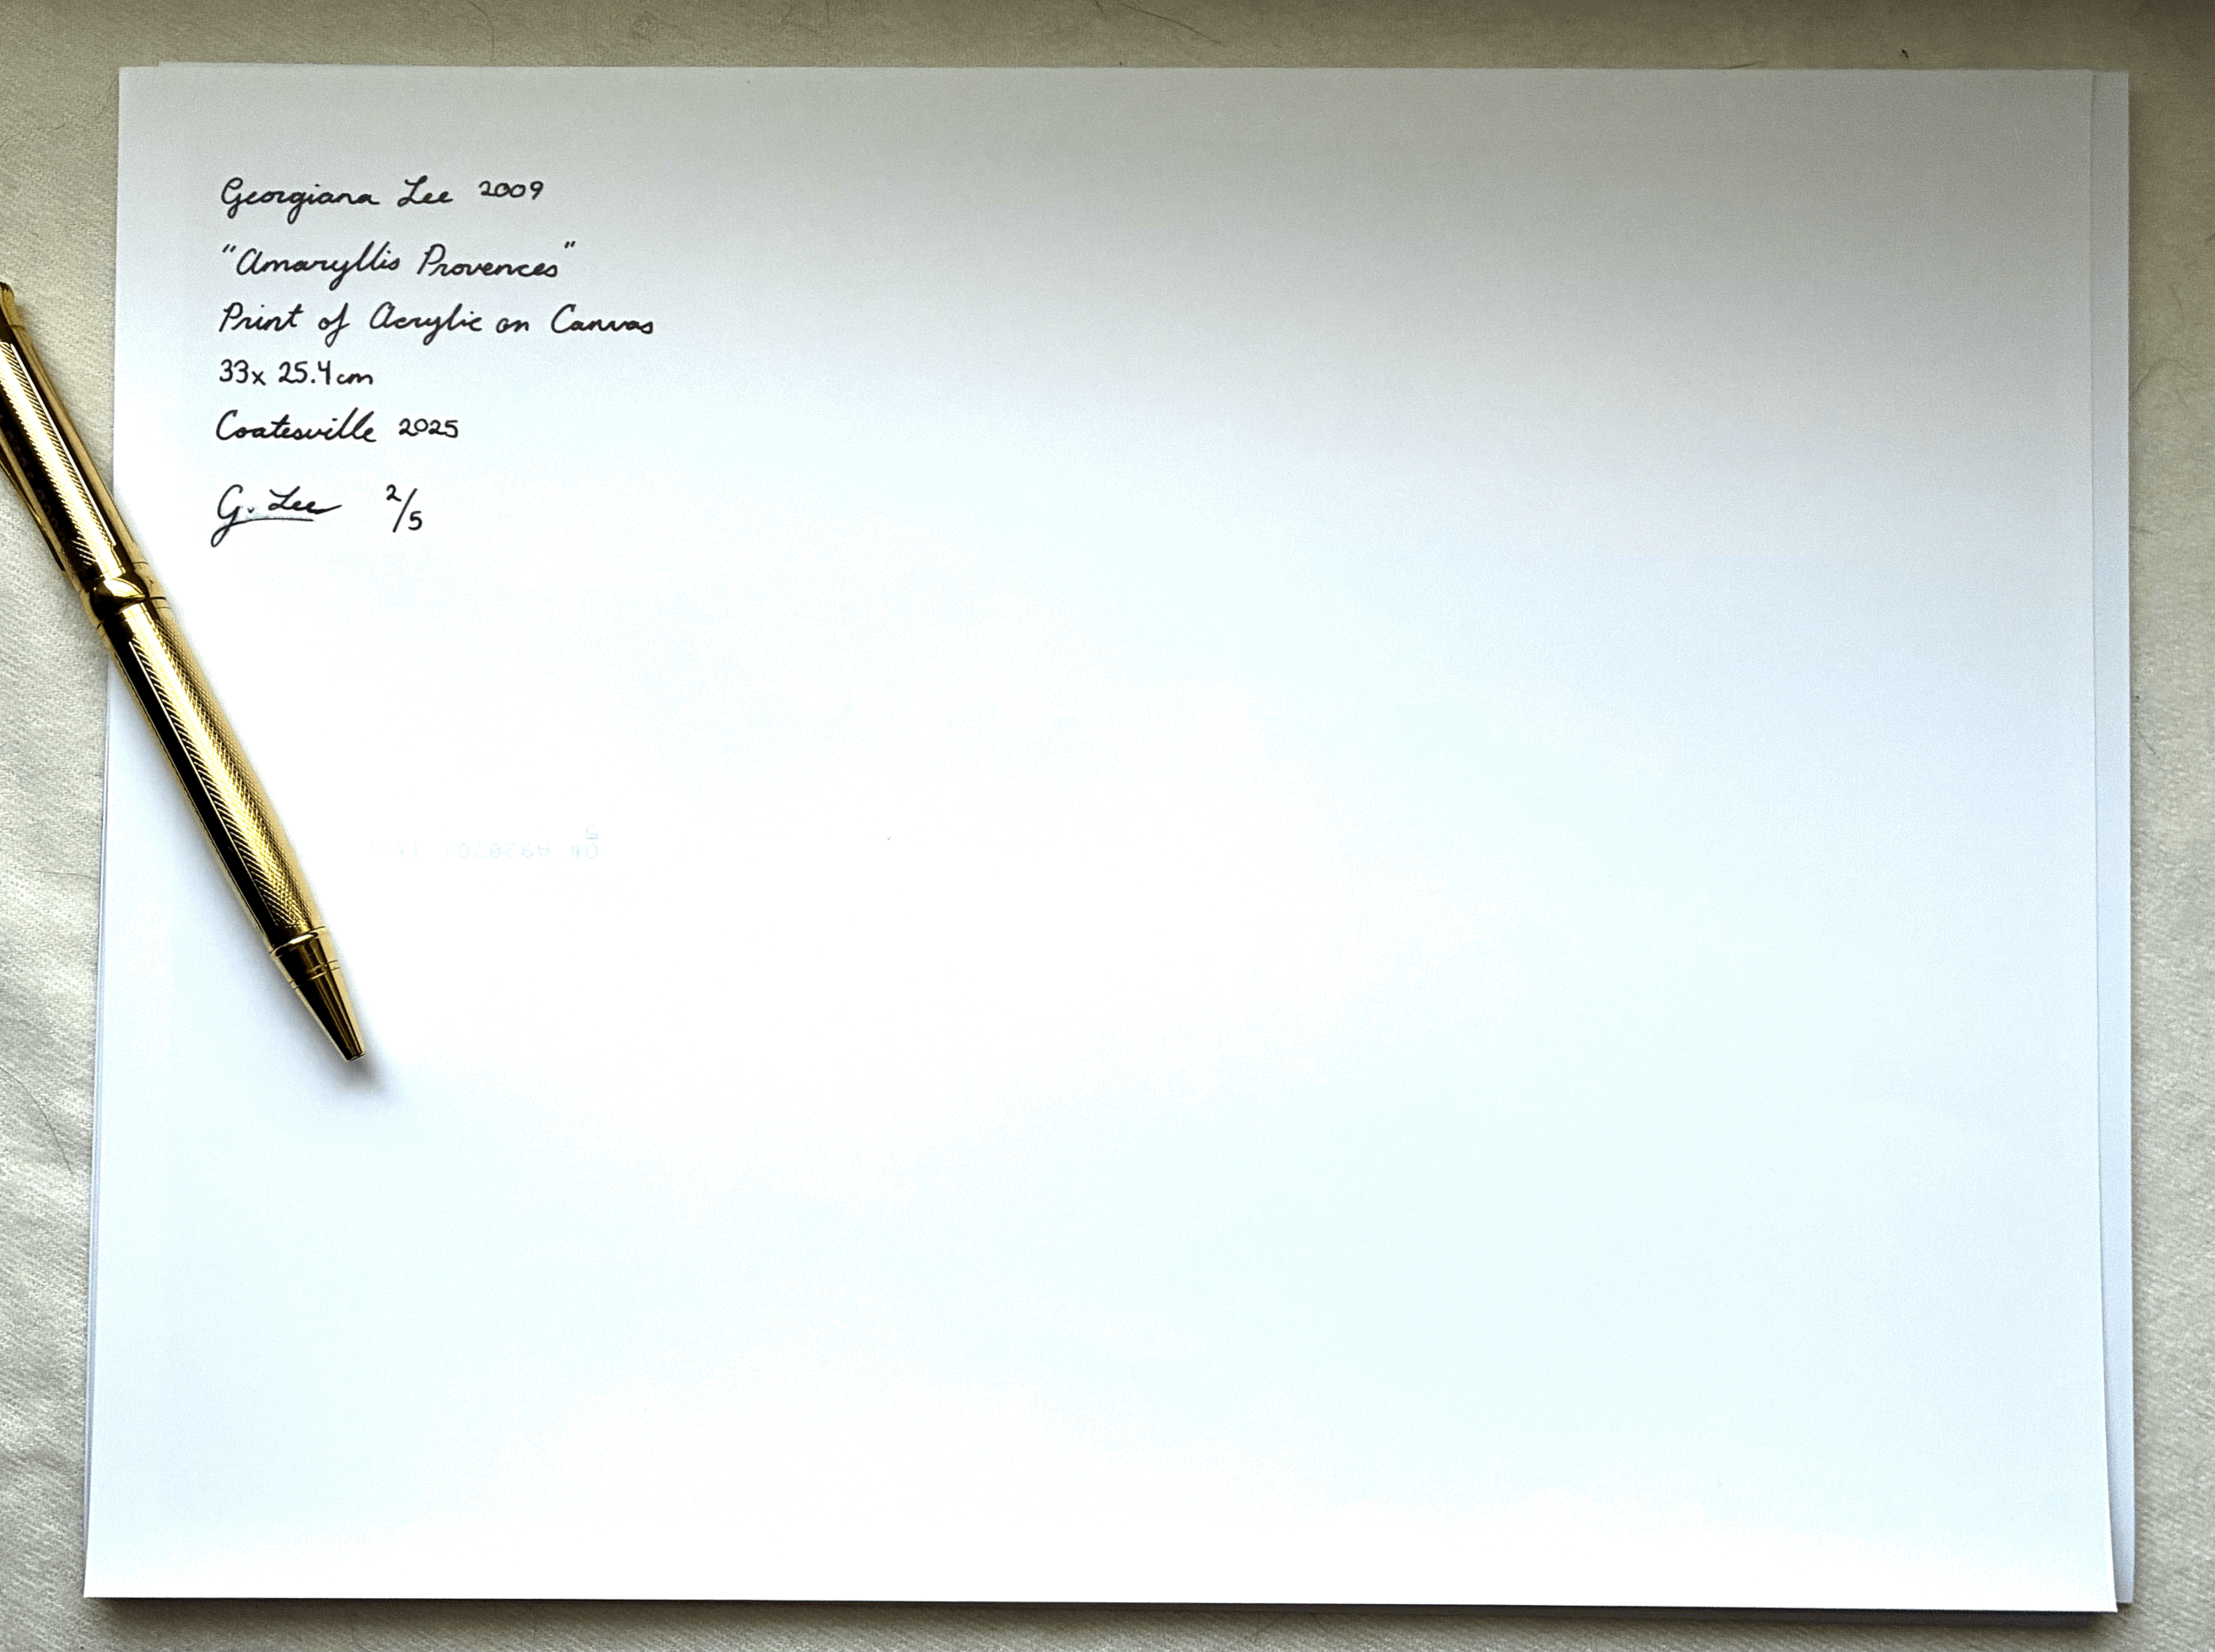 Georgiana Lee 2009
"Amaryllis Provences"
Print of Acrylic on Canvas
33x 25.4cm
Coatesville 2025
G. Lee 2/5